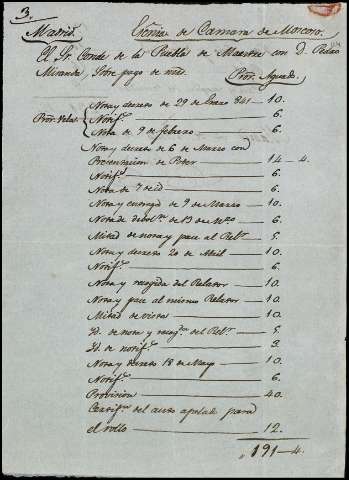 3.
Madrid. Escrib.ª de Camara de Moscoso.
El Sr. Conde de la Puebla de Maestre con D. Pedro
Miranda, sobre pago de mrs.
Pror. Aguado.
Nota y decreto de 29 de Enero 841 — 10.
Notif.n — 6.
Nota de 9 de febrero — 6.
Nota y decreto de 6 de Marzo con
Presentacion de Poder — 14 — 4.
Notif.n — 6.
Nota de 7 de id — 6.
Nota y entrega de 9 de Marzo — 10.
Nota de devol.n de 13 de Mzo — 6.
Mitad de nota y pase al Rel.r — 5.
Nota y decreto 20 de Abril — 10.
Notif.n — 6.
Nota y recogida del Relator — 10.
Nota y pase al mismo Relator — 10.
Mitad de vista — 10.
Id. de nota y recog.da del Rel.r — 5.
Id. de notif.n — 3.
Nota y decreto 18 de Mayo — 10.
Notif.n — 6.
Provision — 40.
Certif.on del auto apelado para
el rollo — 12.
191 — 4.